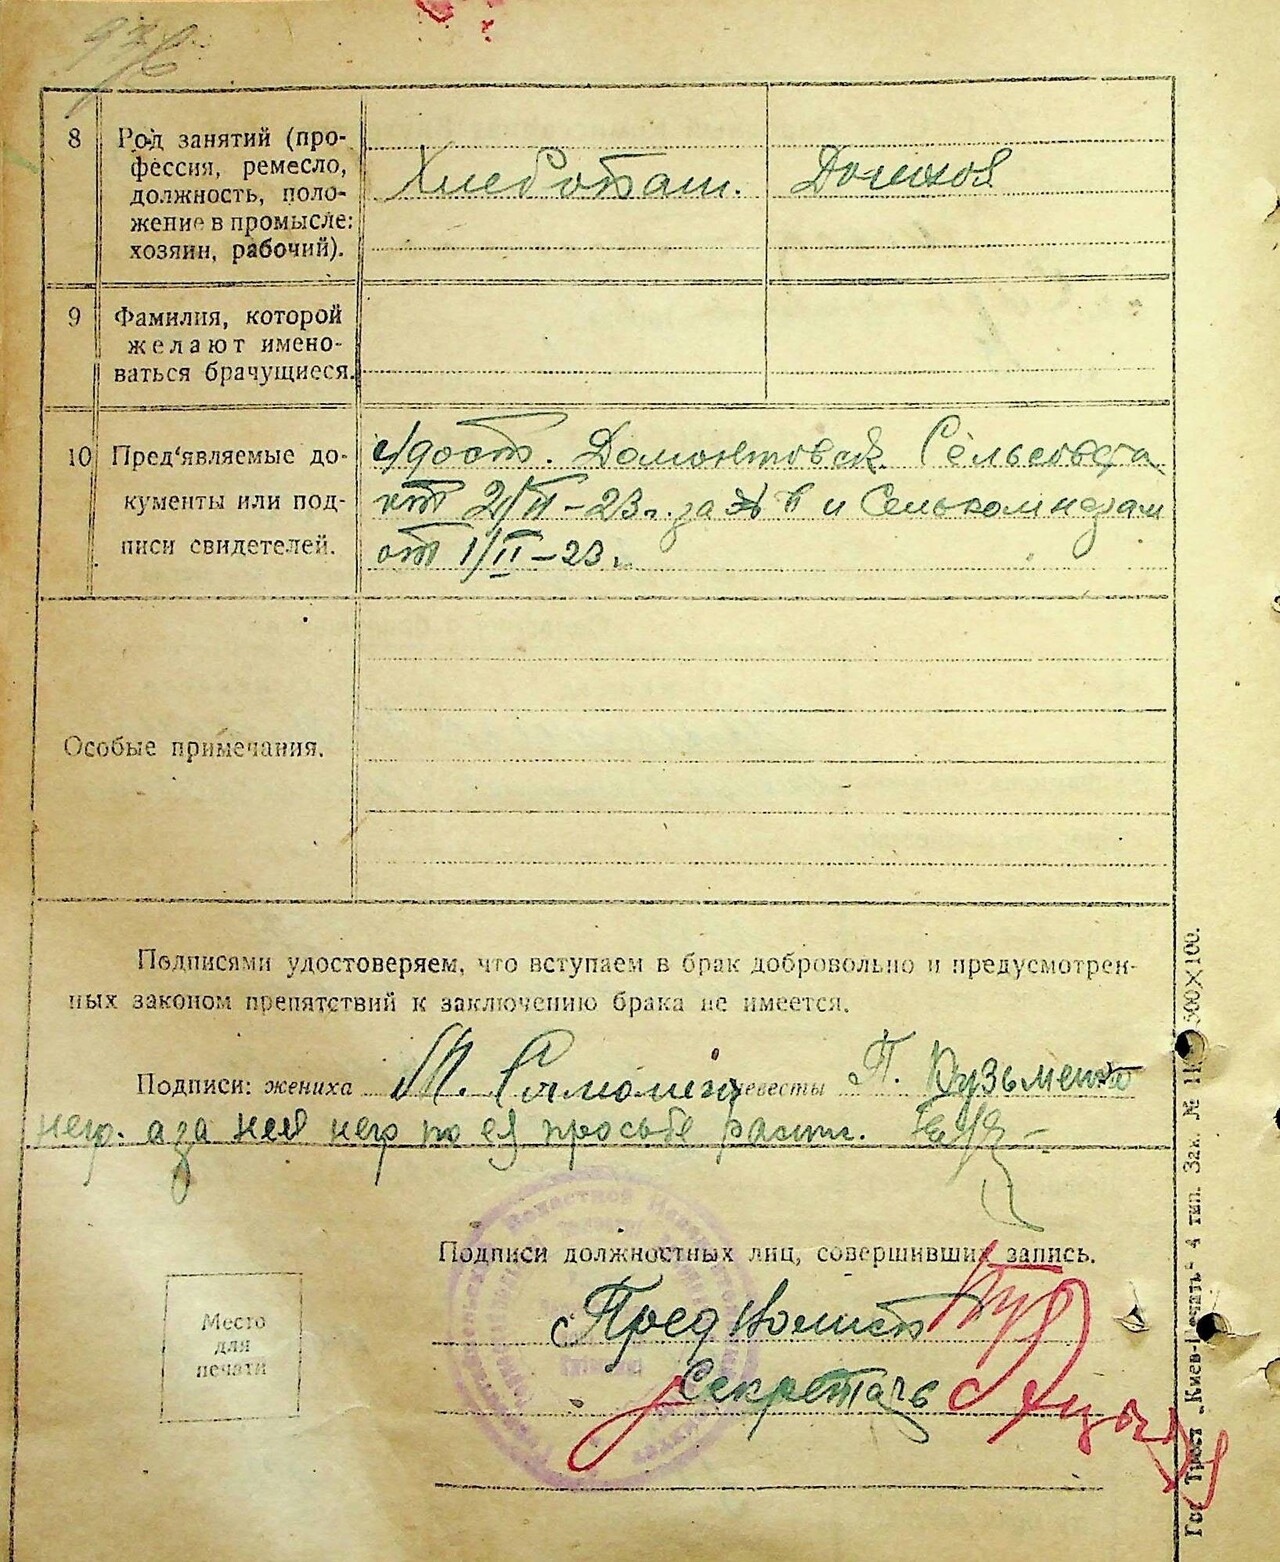 8
Род занятий (про-
фессия, ремесло,
должность, поло-
жение в промысле:
хозяин, рабочий).
Хлебопаш.
9
Фамилия, которой
желают имено-
ваться брачущиеся.
10
Пред'являемые до-
кументы или под-
писи свидетелей.
Домонтовск. Сельсовета
от 2/II-23г. за № и Селькомнезам
от 1/II-23г.
Особые примечания.
Подписями удостоверяем, что вступаем в брак добровольно и предусмотрен-
ных законом препятствий к заключению брака не имеется.
Подписи: жениха М. невесты П. Кузьменко
негр. а за нея негр по ея просьбе распис.
Подписи должностных лиц, совершивших запись.
Пред
Секретарь
Место
для
печати
Гос. Трест „Киев-Печать“ 4 тип. Зак. № 500×100.